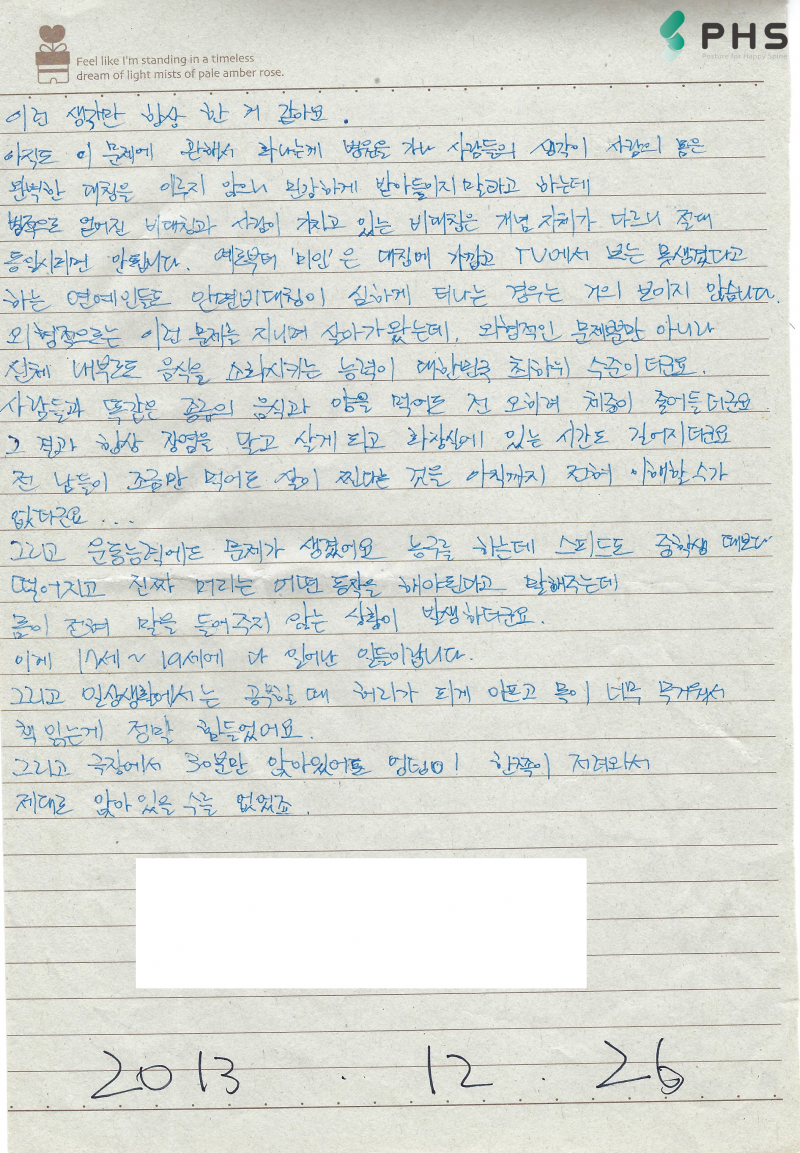 Feel like I'm standing in a timeless
dream of light mists of pale amber rose.
PHS
Posture for Happy Spine
이런 생각만 항상 한 거 같아요.
아직도 이 문제에 관해서 화나는게 병원을 가나 사람들의 생각이 사람의 몸은
완벽한 대칭을 이루지 않으니 민감하게 받아들이지말라고 하는데
병적으로 얻어진 비대칭과 사람이 가지고 있는 비대칭은 개념 자체가 다르니 절대
동일시하면 안됩니다. 예로부터 '미인'은 대칭에 가깝고 TV에서 보는 못생겼다고
하는 연예인들도 안면비대칭이 심하게 티나는 경우는 거의 보이지 않습니다.
외형적으로는 이런 문제를 지니며 살아가왔는데, 외형적인 문제뿐만 아니라
신체 내부로도 음식을 소화시키는 능력이 대한민국 최하위 수준이더군요.
사람들과 똑같은 종류의 음식과 양을 먹어도 전 오히려 체중이 줄어들더군요
그 결과 항상 장염을 달고 살게 되고 화장실에 있는 시간도 길어지더군요
전 남들이 조금만 먹어도 살이 찐다는 것을 아직까지 전혀 이해할수가
없더군요...
그리고 운동능력에도 문제가 생겼어요 농구를 하는데 스피드도 중학생 때보다
떨어지고 진짜 머리는 어떤 동작을 해야된다고 말해주는데
몸이 전혀 말을 들어주지 않는 상황이 발생하더군요.
이게 17세~19세에 다 일어난 일들이랍니다.
그리고 일상생활에서는 공부할 때 허리가 되게 아프고 목이 너무 무거워서
책 읽는게 정말 힘들었어요.
그리고 극장에서 30분만 앉아있어도 엉덩이 한쪽이 저려와서
제대로 앉아 있을 수는 없었죠.
2013. 12. 26